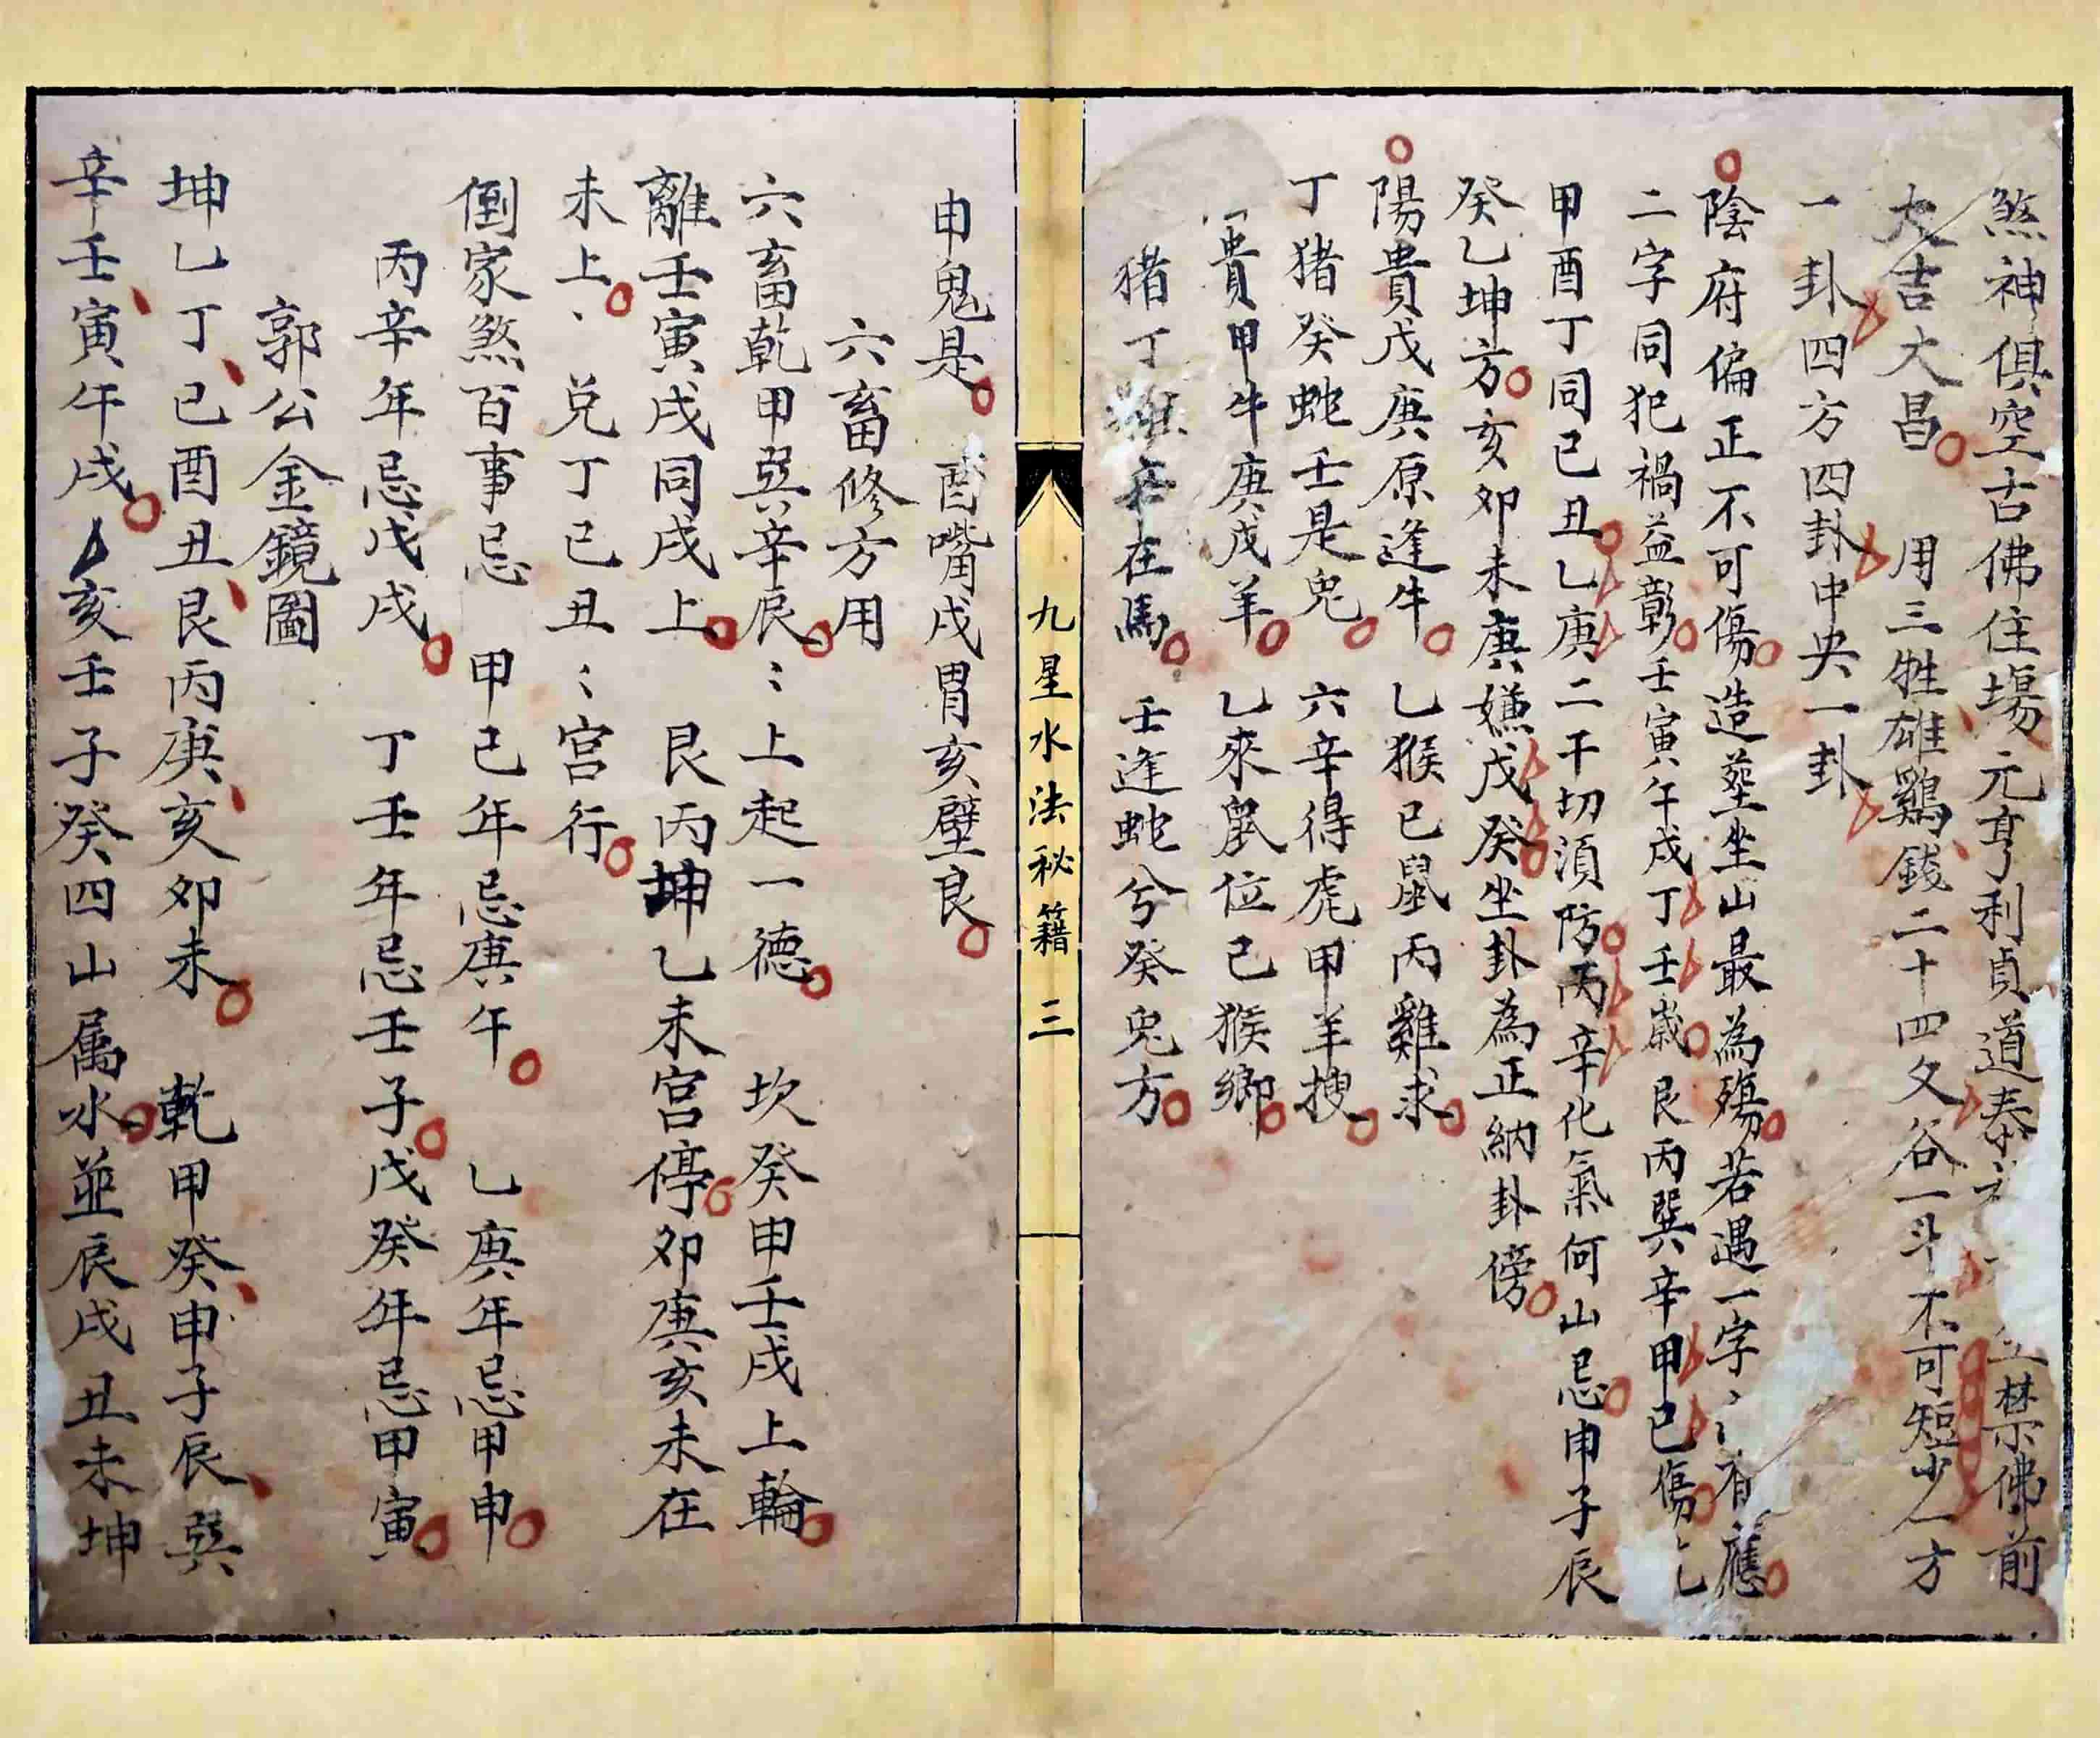 煞神俱空古佛住場元亨利貞道泰禁佛前
大吉大昌 用三牲雄鷄錢二十四文谷一斗不可短少一方
一卦四方四卦中央一卦
陰府偏正不可傷造塟坐山最為殤若遇一字〻〻有應
二字同犯禍益彰壬寅午戌丁壬歲艮丙巽辛甲已傷
甲酉丁同已丑乙庚二干切須防丙辛化氣何山忌申子辰
癸乙坤方亥卯未庚嫌戊癸坐卦為正納卦傍
陽貴戊庚原逢牛 乙猴已鼠丙雞求
丁猪癸蛇壬是兔 六辛得虎甲羊搜
貴甲牛庚戊羊 乙來鼠位已猴鄉
猪丁辛在馬 壬逢蛇兮癸兔方
九星水法秘籍 三
申鬼是 酉嘴戌胃亥壁良
六畜修方用
六畜乾甲巽辛辰〻上起一德 坎癸申壬戌上輪
離壬寅戌同戌上 艮丙坤乙未宮停卯庚亥未在
未上、兑丁已丑〻宮行
倒家煞百事忌 甲已年忌庚午 乙庚年忌甲申
丙辛年忌戊戌 丁壬年忌壬子戊癸年忌甲寅
郭公金鏡圖
坤乙丁已酉丑艮丙庚亥卯未 乾甲癸申子辰巽
辛壬寅午戌亥壬子癸四山属水並辰戌丑未坤